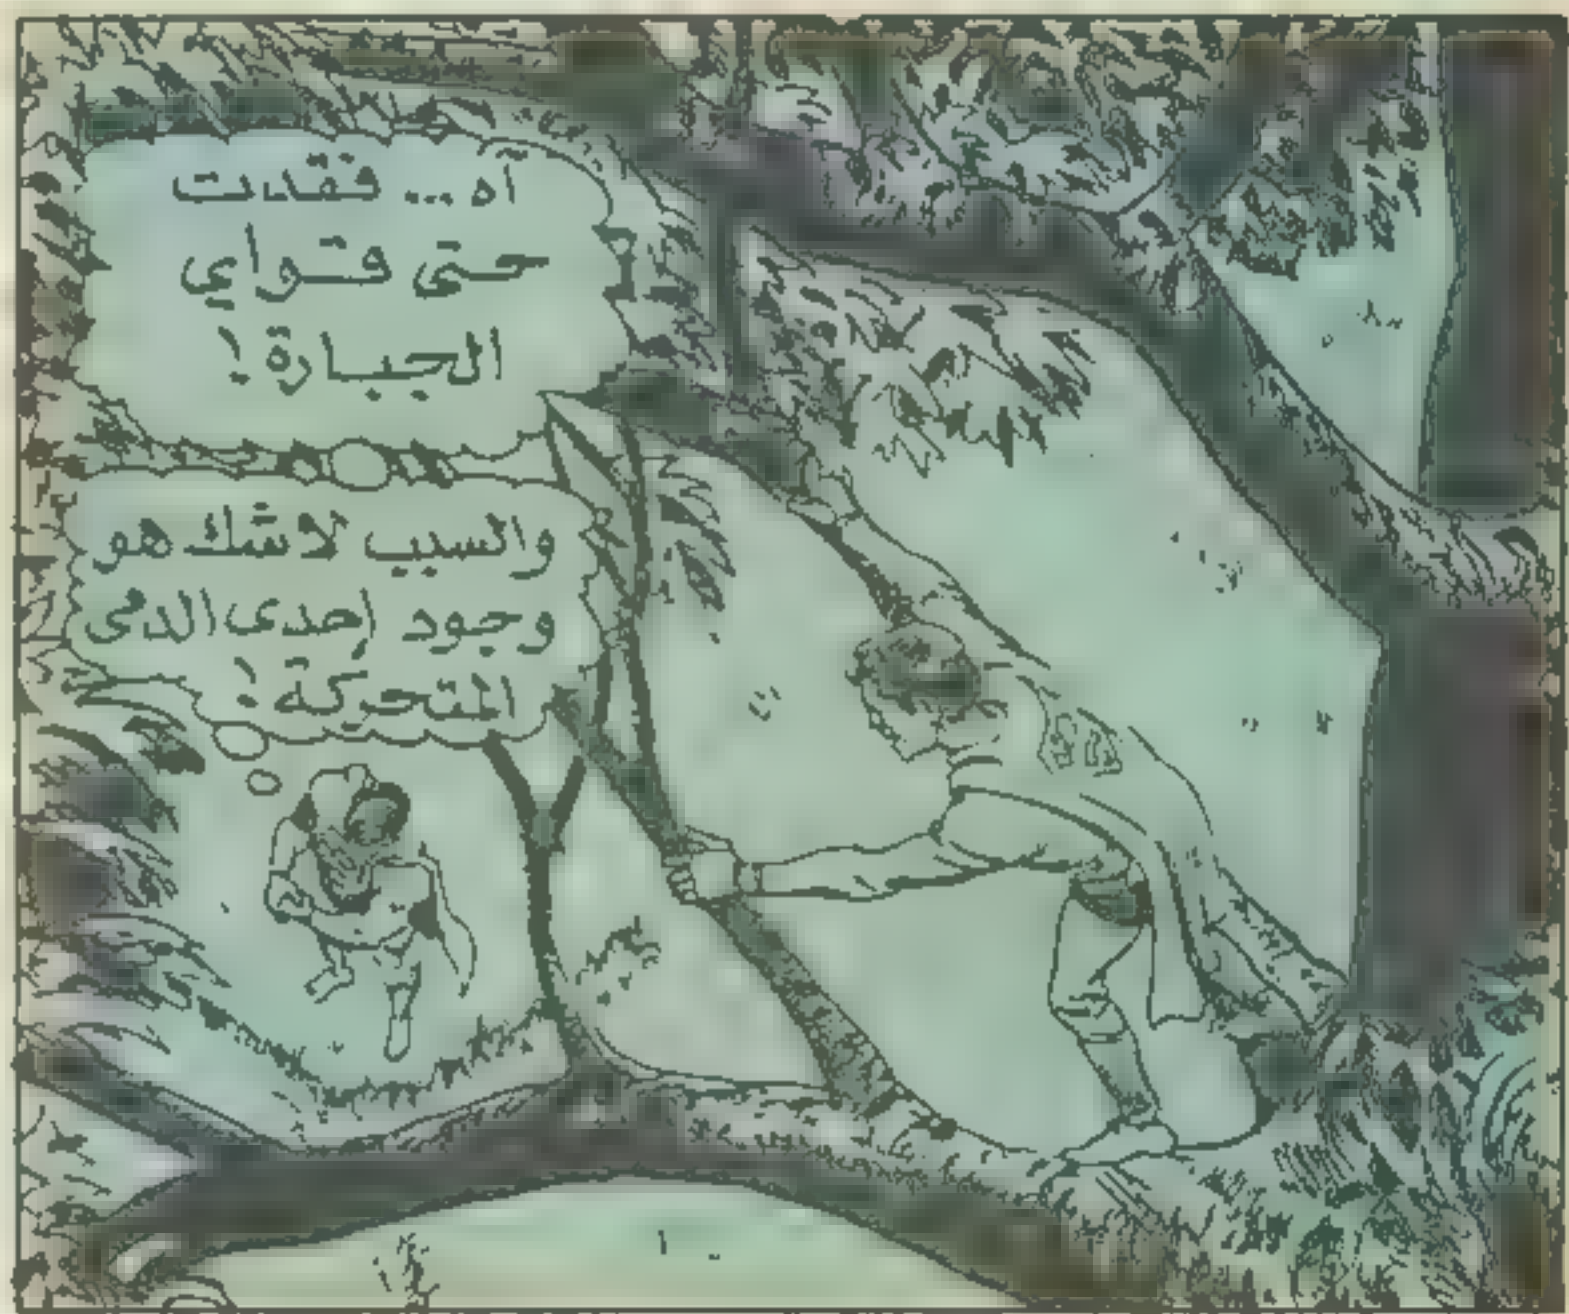 آه ... فقدت
حتى قواي
الجبارة !
والسبب لاشك هو
وجود إحدى الدمى
المتحركة !